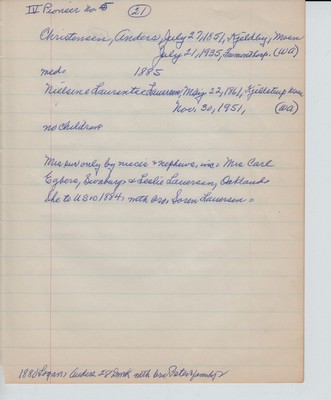 IV Pioneer no 5 (21)
Christensen, Anders, July 27, 1851, Kjeldby, Moen
July 21, 1935, (Wa)
md. 1885
Nielsine Laurentze Laursen, May 22, 1861, Moen
Nov. 30, 1951, (Wa)
no children
Mrs sur only by nieces & nephews, inc. Mrs Carl
Egbers, & Leslie Lauersen, Oakland.
She to US in 1884, with bro. Soren Lauersen.
1880 Logan: Anders 28 Dmk with bro Peter & family